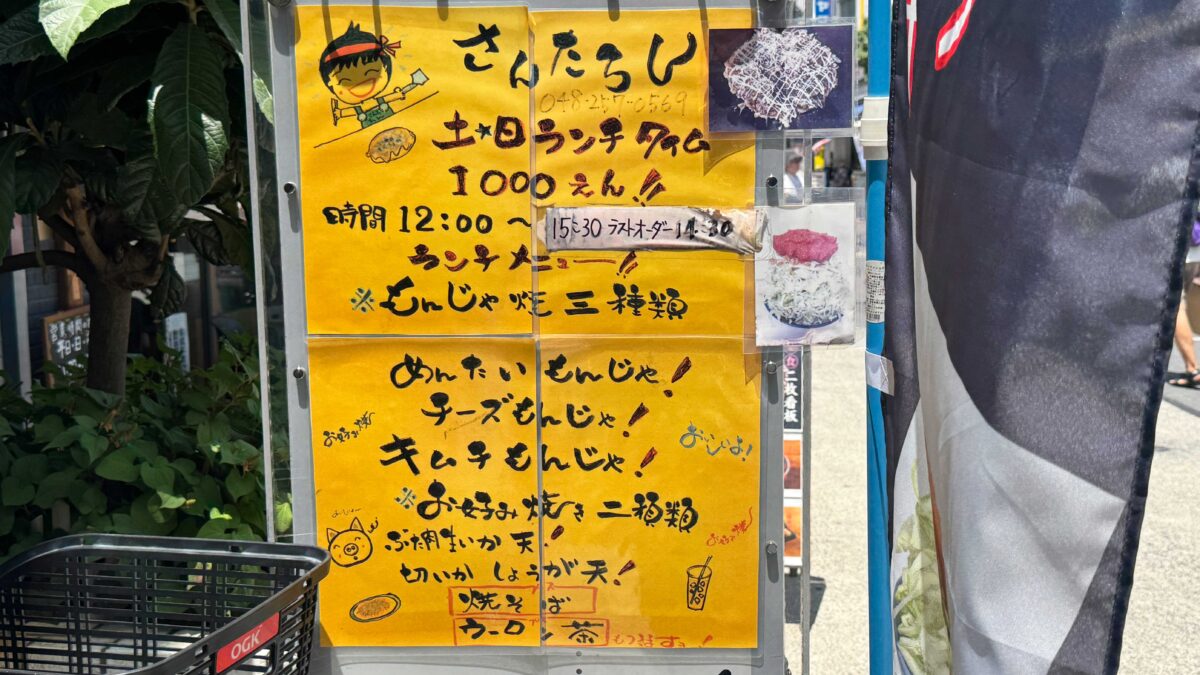 さんたらし
048-257-0569
土★日ランチタイム
1000えん!!
時間 12:00～15:30 ラストオーダー14:30
ランチメニュー!!
※もんじゃ焼 三種類
めんたいもんじゃ!
チーズもんじゃ!
お好み焼
キムチもんじゃ!
おいしいよ!
※お好み焼き 二種類
お好み焼
ぶた肉生いか天!
切いかしょうが天!
焼そば
ウーロン茶
二枚看板
OGK